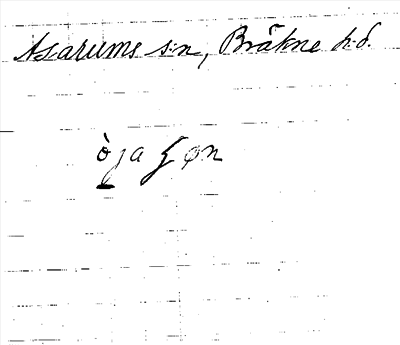 Asarums s:n, Bräkne h-d.
òja ʃøn